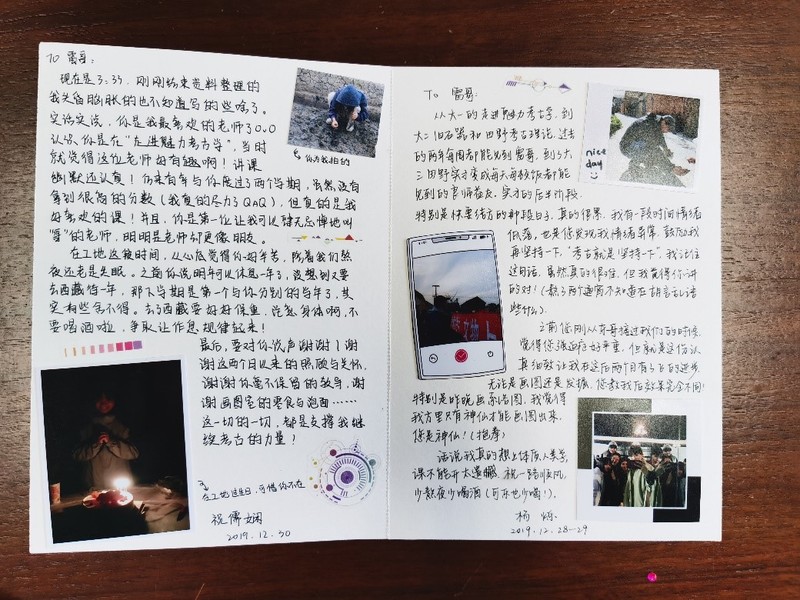 TO 雷哥：
现在是3:33，刚刚结束资料整理的
我头昏脑胀的也不知道写的些啥了。
实话实说，你是我最喜欢的老师了O.O
认识你是在“走进魅力考古学”，当时
就觉得这位老师好有趣啊！讲课
幽默还认真！后来有幸与你度过了两个学期，虽然没有
拿到很高的分数（我真的尽力了QAQ），但真的是我
好喜欢的课！并且，你是第一位让我可以肆无忌惮地叫
“哥”的老师，明明是老师却更像朋友。
在工地这段时间，从心底觉得你好辛苦，陪着我们熬
夜还老是失眠。之前你说明年可以休息一年了，没想到又要
去西藏待一年，那下学期是第一个与你分别的学年了，其
实有些舍不得。去了西藏要好好保重，注意身体啊，不
要喝酒啦，争取让作息规律起来！
最后，要对你说声谢谢！谢
谢这两个月以来的照顾与关怀，
谢谢你毫不保留的教导，谢
谢画图室的零食与泡面……
这一切的一切，都是支撑我继
续考古的力量！
你为我拍的
在工地过生日，可惜你不在
祝儒娴
2019.12.30
To 雷哥：
从大一的走进魅力考古学，到
大二旧石器和田野考古理论，过去
的两年每周都能见到雷哥，到了大
三田野实习变成每天每顿饭都能
见到的良师益友。实习的后半阶段，
特别是快要结束的那段日子，真的很累，我有一段时间情绪
低落，也是您发现我情绪异常，鼓励我
再坚持一下，“考古就是坚持一下”，我记住
这句话，虽然真的很难，但我觉得你讲
的对！（熬了两个通宵不知道在胡言乱语
些什么）
之前您刚从方哥接过我们的时候，
觉得您强迫症好严重，但就是这份认
真细致才让我在这后两个月有了飞的进步
无论是画图还是发掘，您教我后效果完全不同！
特别是昨晚画总图，我觉得
我方里只有神仙才能画图出来，
您是神仙！（抱拳）
话说我真的想上体质人类学
课不能开太遗憾，祝一路顺风，
少熬夜少喝酒（可乐也少喝！）。
杨烁
2019.12.28-29
nice
day